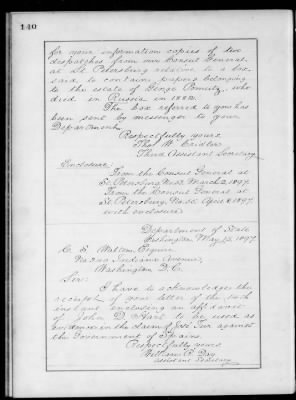 140
for your information copies of two
dispatches from our Consul General
at St. Petersburg relative to a box
said to contain papers belonging
to the estate of George Pomutz, who
died in Russia in 1882.
The box referred to you has
been sent by messenger to your
Department.
Respectfully yours
Thos. W. Cridler
Third Assistant Secretary.
Enclosure:
From the Consul General at
St. Petersburg, No. March 2, 1897.
From the Consul General at
St. Petersburg, No. April 6, 1897.
with enclosure.
Department of State
Washington, May 15, 1897.
C. S. Esquire
No. Indiana Avenue,
Washington D.C.
Sir:
I have to acknowledge the
receipt of your letter of the
instant enclosing an affidavit
of John D. to be used as
evidence in the claim of José against
the Government of Spain.
Respectfully yours
William R. Day
Assistant Secretary.